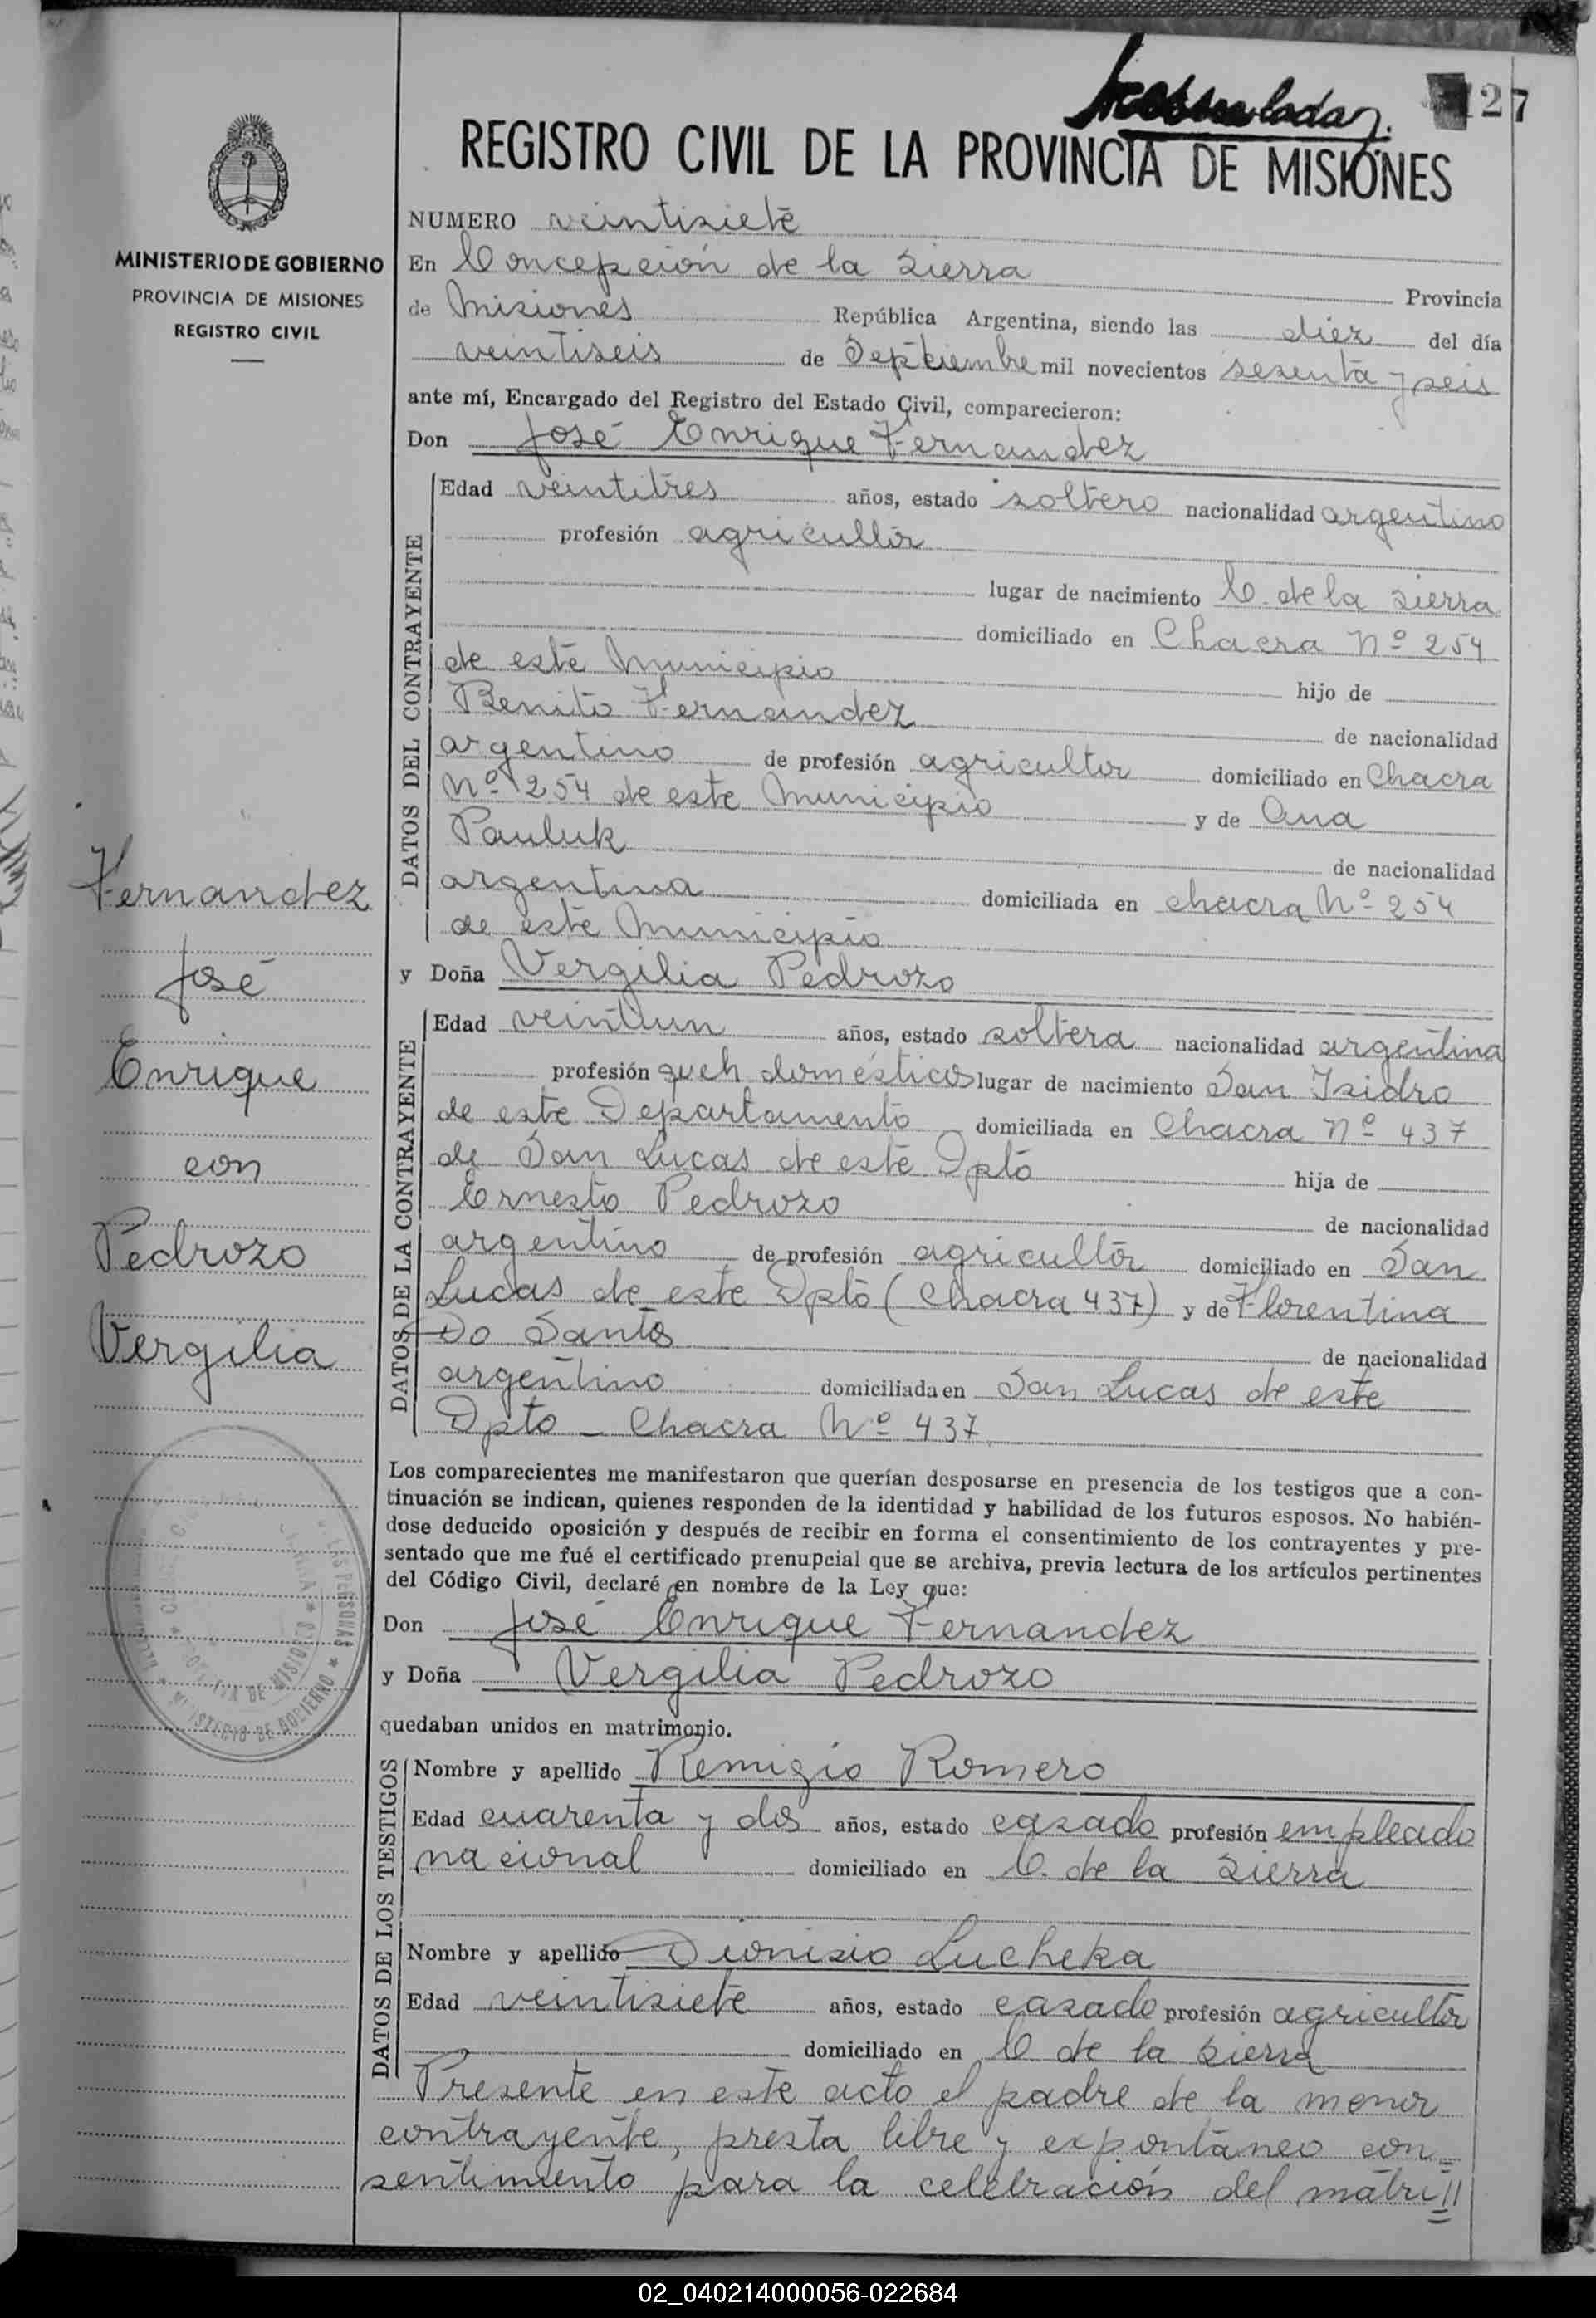 127
REGISTRO CIVIL DE LA PROVINCIA DE MISIONES
MINISTERIO DE GOBIERNO
PROVINCIA DE MISIONES
REGISTRO CIVIL
NUMERO veintisiete
En Concepción de la Sierra Provincia
de Misiones República Argentina, siendo las diez del día
veintiseis de Septiembre mil novecientos sesenta y seis
ante mí, Encargado del Registro del Estado Civil, comparecieron:
Don José Enrique Fernandez
DATOS DEL CONTRAYENTE
Edad veintitres años, estado soltero nacionalidad argentino
profesión agricultor
lugar de nacimiento C. de la Sierra
domiciliado en Chacra Nº 254
de este Municipio hijo de
Benito Fernandez de nacionalidad
argentino de profesión agricultor domiciliado en Chacra
Nº 254 de este Municipio y de Ana
Pauluk de nacionalidad
argentina domiciliada en chacra Nº 254
de este Municipio
y Doña Vergilia Pedrozo
DATOS DE LA CONTRAYENTE
Edad veintiun años, estado soltera nacionalidad argentina
profesión queh domésticos lugar de nacimiento San Isidro
de este Departamento domiciliada en Chacra Nº 437
de San Lucas de este Dpto hija de
Ernesto Pedrozo de nacionalidad
argentino de profesión agricultor domiciliado en San
Lucas de este Dpto (Chacra 437) y de Florentina
Do Santos de nacionalidad
argentino domiciliada en San Lucas de este
Dpto - Chacra Nº 437
Los comparecientes me manifestaron que querían desposarse en presencia de los testigos que a con-
tinuación se indican, quienes responden de la identidad y habilidad de los futuros esposos. No habién-
dose deducido oposición y después de recibir en forma el consentimiento de los contrayentes y pre-
sentado que me fué el certificado prenupcial que se archiva, previa lectura de los artículos pertinentes
del Código Civil, declaré en nombre de la Ley que:
Don José Enrique Fernandez
y Doña Vergilia Pedrozo
quedaban unidos en matrimonio.
DATOS DE LOS TESTIGOS
Nombre y apellido Remigio Romero
Edad cuarenta y dos años, estado casado profesión empleado
nacional domiciliado en C. de la Sierra
Nombre y apellido Dionisio Lucheka
Edad veintisiete años, estado casado profesión agricultor
domiciliado en C de la Sierra
Presente en este acto el padre de la menor
contrayente, presta libre y expontáneo con=
sentimiento para la celebración del matri//
Fernandez
José
Enrique
con
Pedrozo
Vergilia
LAS PERSONAS
DE MISIONES
MINISTERIO DE GOBIERNO
02_040214000056-022684